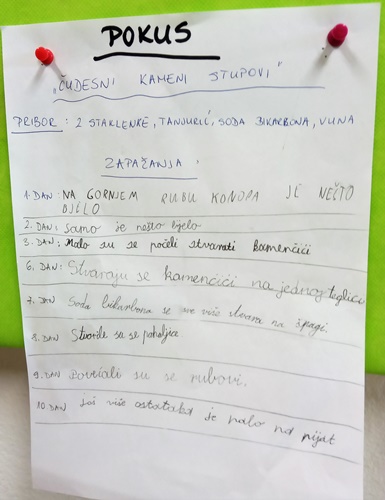 POKUS
"ČUDESNI KAMENI STUPOVI"
PRIBOR: 2 STAKLENKE, TANJURIĆ, SODA BIKARBONA, VUNA
ZAPAŽANJA:
1. DAN: NA GORNJEM RUBU KONOPA JE NEŠTO
BJELO
2. DAN: Samo je nešto bjelo
3. DAN: Malo su se počeli stvarati kamenčići
6. DAN: Stvaraju se kamenčići na jednoj teglici
7. DAN Soda bikarbona se sve više stvara na špagi
8. DAN Stvorile su se pahuljice
9. DAN su se rubovi.
10. DAN Još više ostataka je palo na pijat